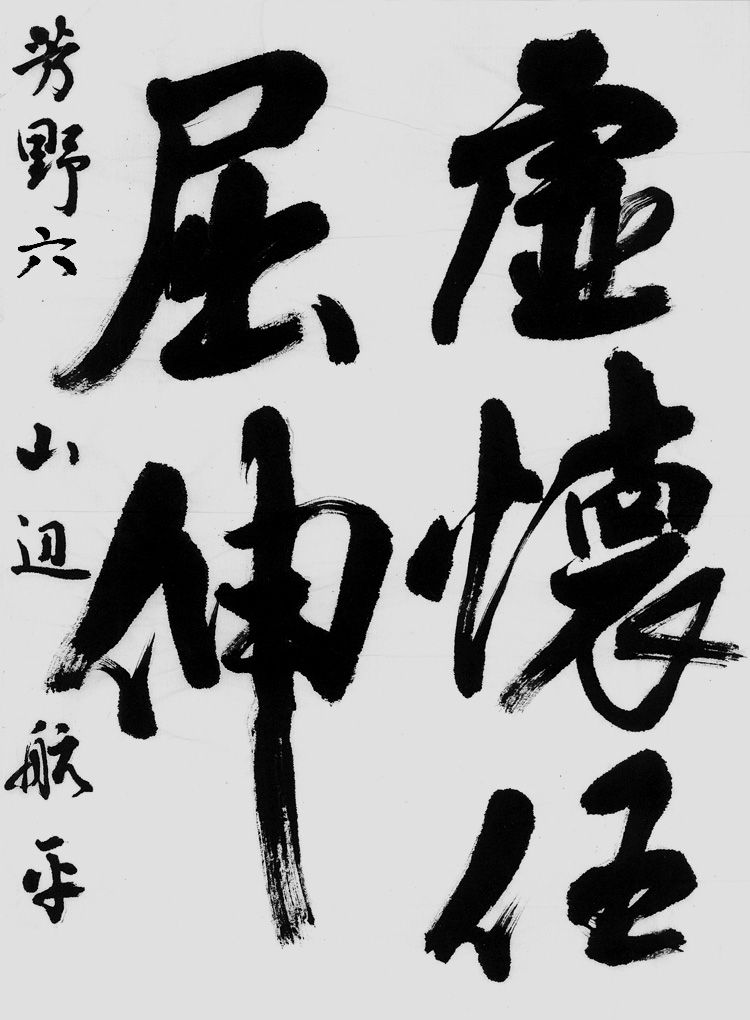 虚懐任
屈伸
芳野六 山辺 航平